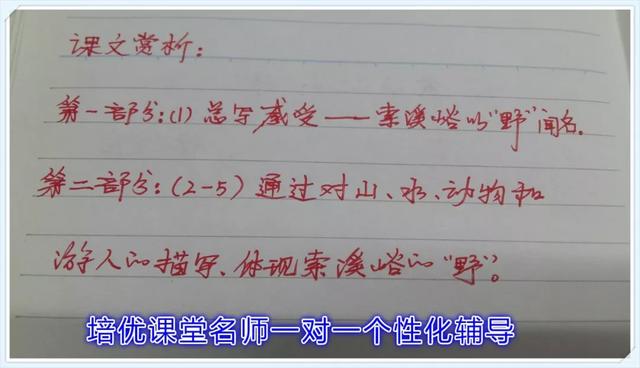 课文赏析：
第一部分：(1)总写感受——索溪峪以"野"闻名。
第二部分：(2-5)通过对山、水、动物和
游人的描写、体现索溪峪的"野"。
培优课堂名师一对一个性化辅导